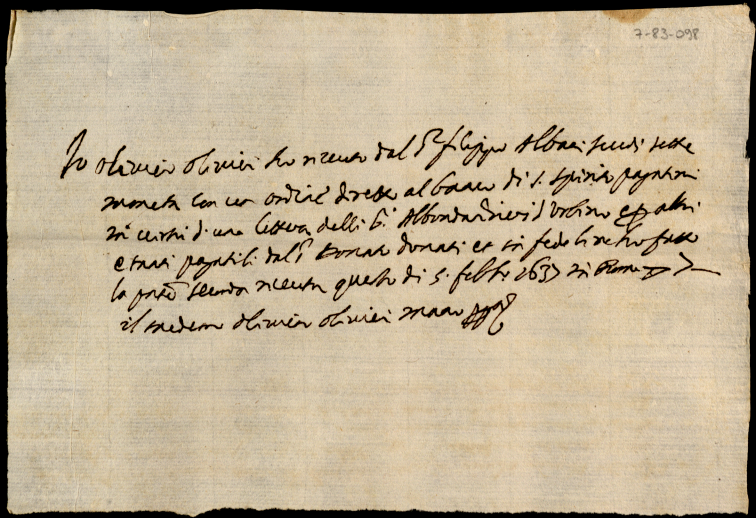 7-83-098
Io olivier olivieri ho riceuto dal Sr filippo Albani scudi sette
moneta con un ordine diretto al banco di S. Spirito pagatimi
in virtù di una lettera delli Sri d'Urbino et altri
pagatili dal Sr Donato donati et in fede li ne ho fatto
la presẽ riceuta questo dì 5. febro 1637 in Roma
il medemo olivier olivieri mano ppa